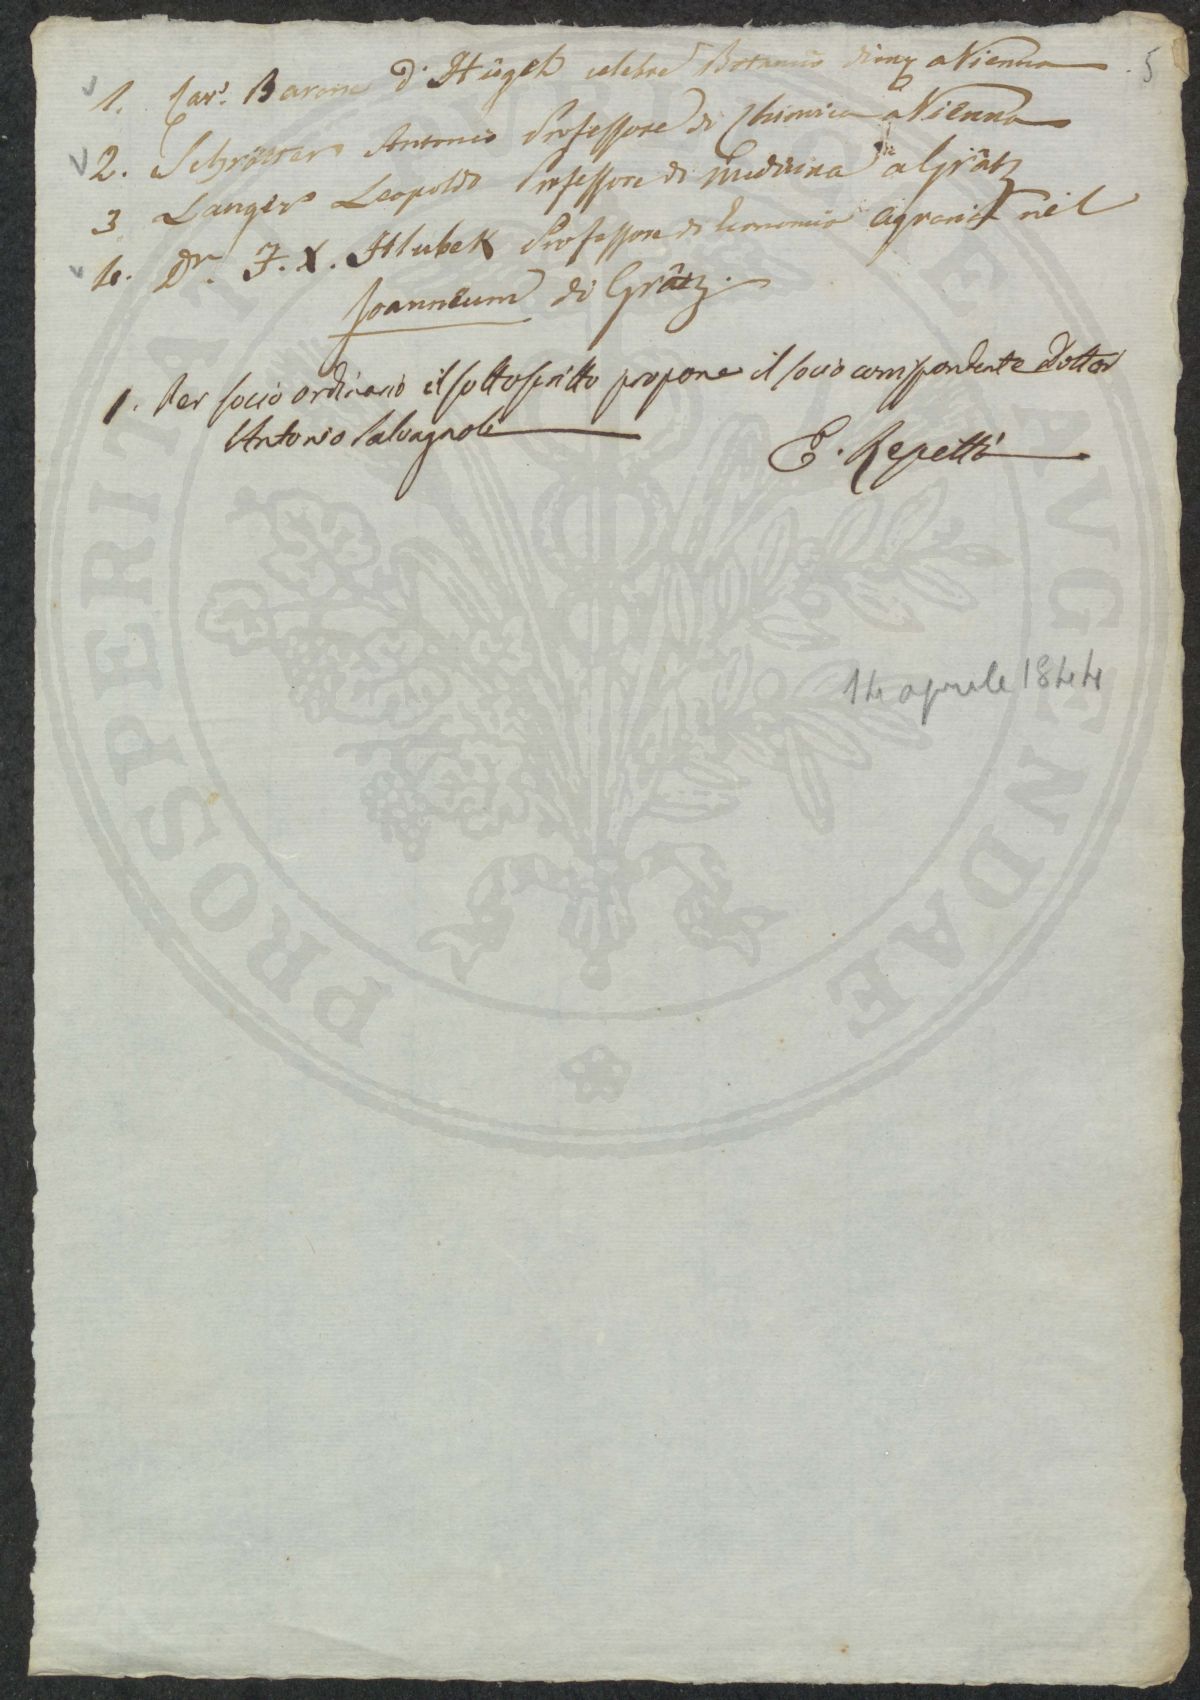 5
1. Cav.e Barone d'Hügel celebre Botanico a Vienna
2. Schrötter Antonio Professore di Chimica a Vienna
3 Langer Leopoldo Professore di Medicina a Grätz
4. Dr. F. X. Hlubek Professore di Economia Agraria nel
Joanneum di Grätz.
1. Per socio ordinario il sottoscritto propone il socio corrispondente Dottor
Antonio Salvagnoli
E. Repetti
14 aprile 1844
PROSPERITATI AVGENDAE